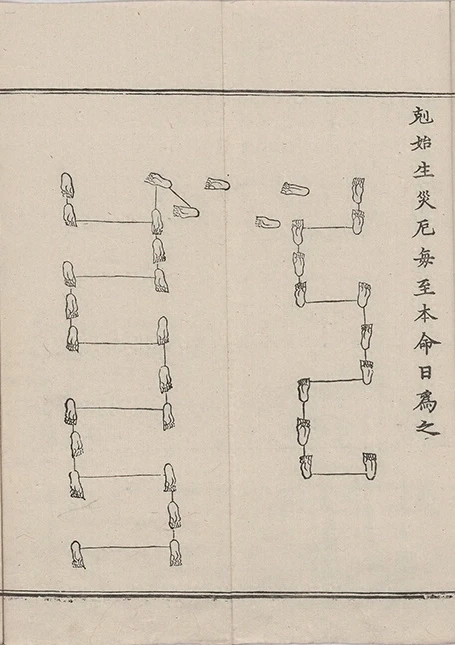 剋始生災厄每至本命日爲之